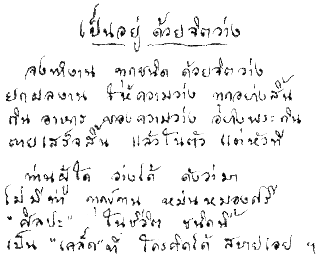 เป็นอยู่ ด้วยจิตว่าง
จงทำงาน ทุกชนิด ด้วยจิตว่าง
ยกผลงาน ให้ความว่าง ทุกอย่างสิ้น
กิน อาหาร ของความว่าง อย่างพระกิน
ตายเสร็จสิ้น แล้วในตัว แต่หัวที
ท่านผู้ใด ว่างได้ ดังว่ามา
ไม่มีท่า ทุกข์ทน หม่นหมองศรี
"ศิลปะ" ในชีวิต ชนิดนี้
เป็น "เคล็ด" ที่ ใครคิดได้ สบายเอย ฯ